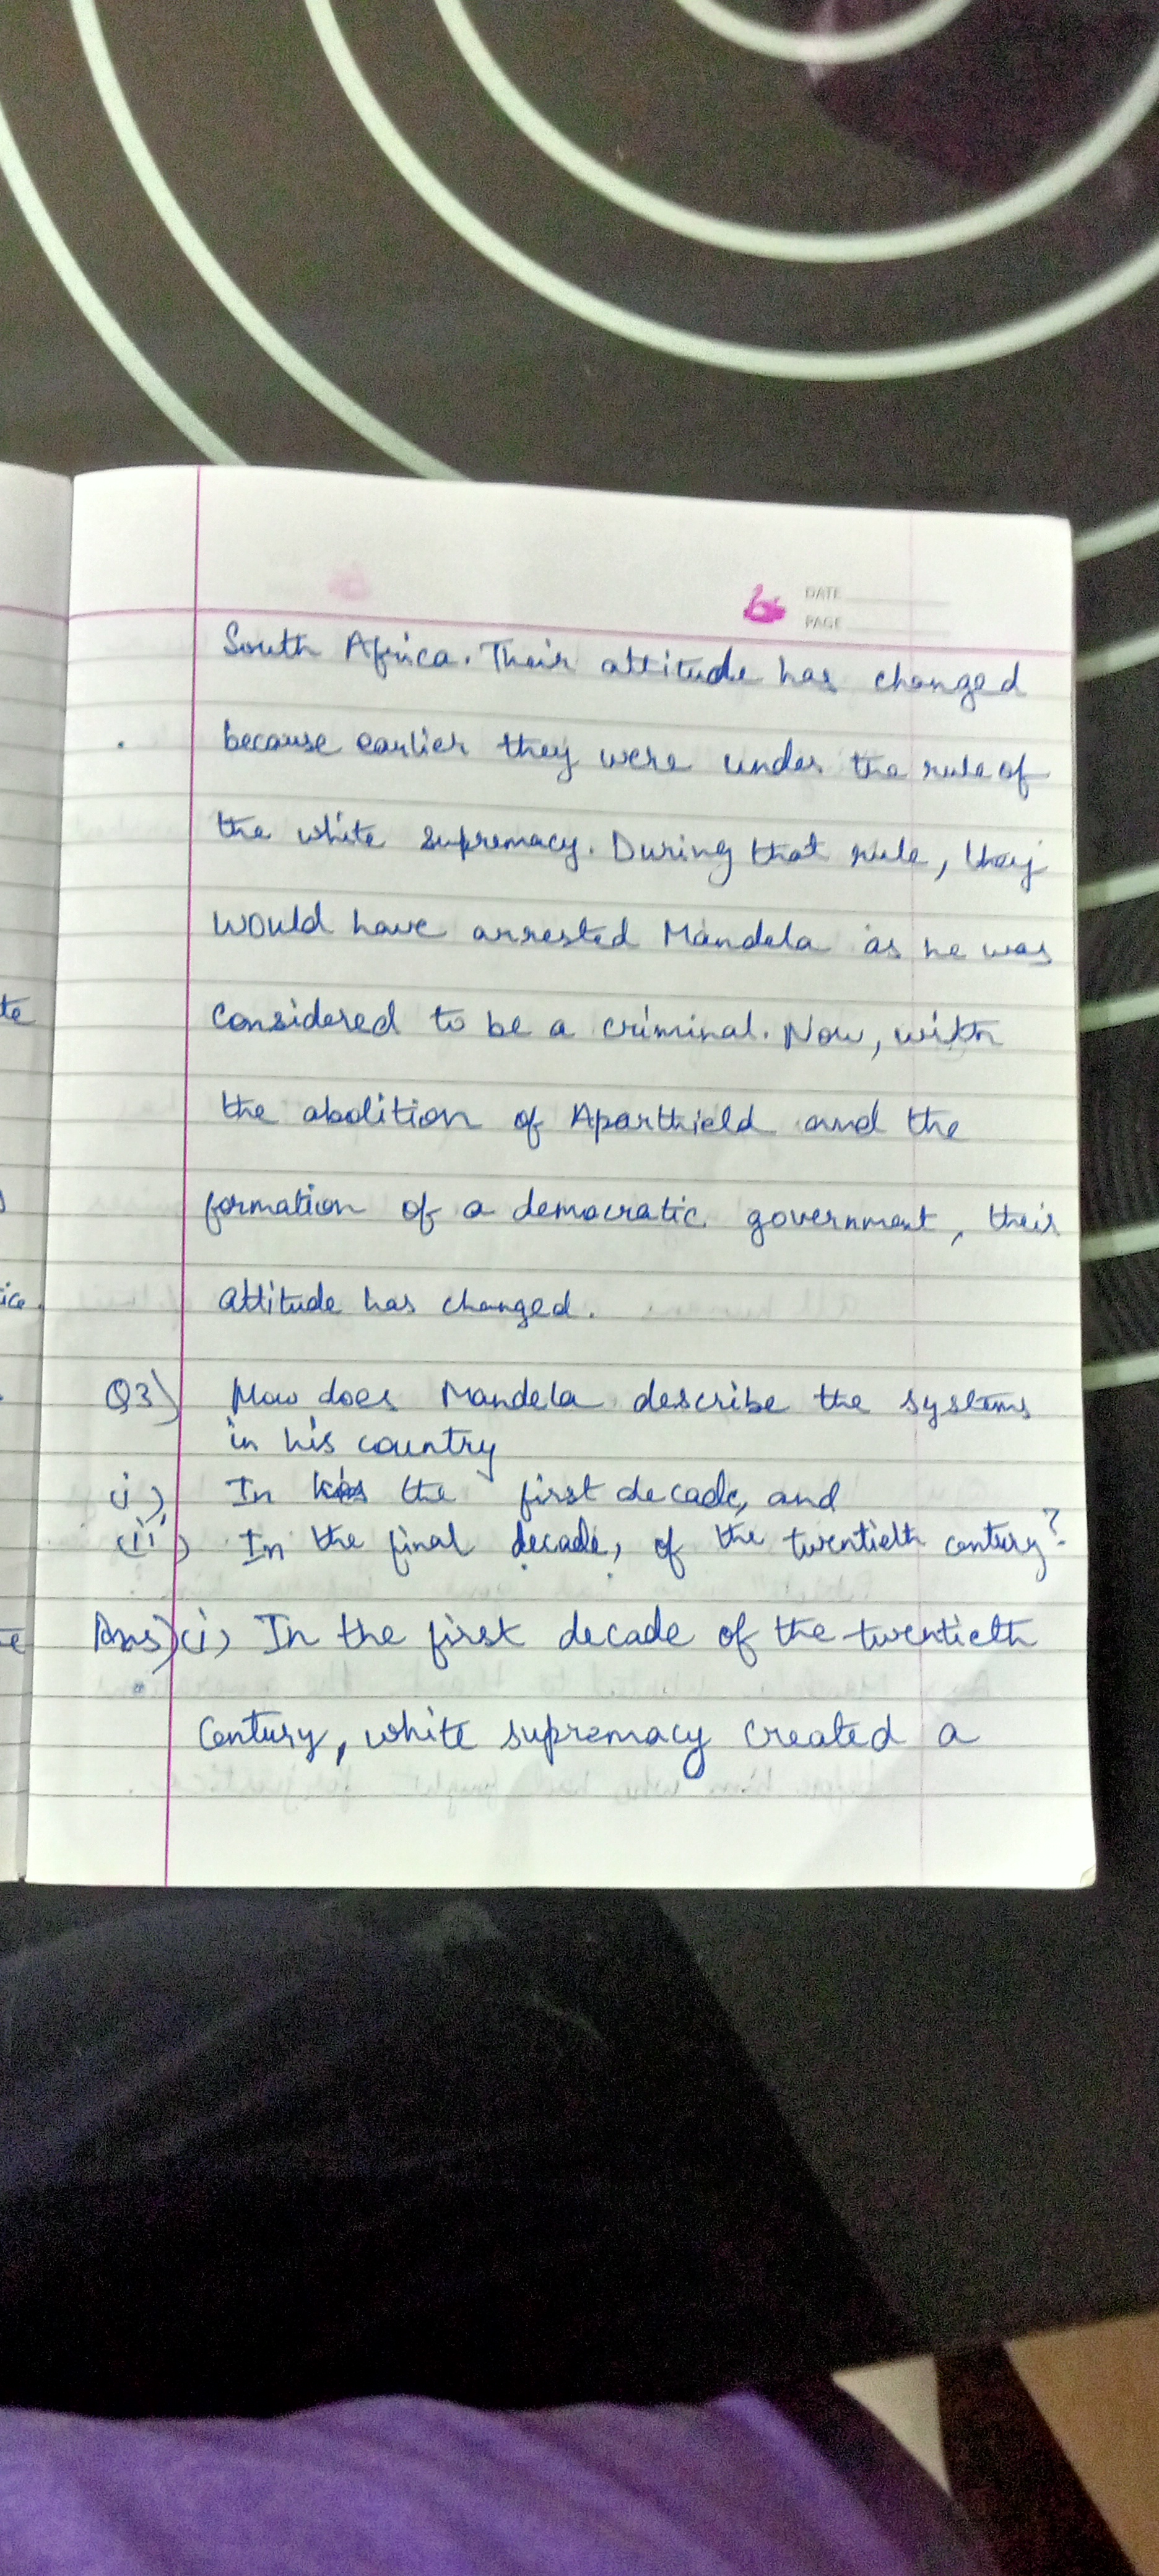 DATE
PAGE
South Africa. Their attitude has changed
because earlier they were under the rule of
the white supremacy. During that rule, they
would have arrested Mandela as he was
considered to be a criminal. Now, with
the abolition of Aparthield and the
formation of a democratic government, their
attitude has changed.
Q3) How does Mandela describe the systems
in his country
i) In the first decade, and
(ii) In the final decade, of the twentieth century?
Ans)(i) In the first decade of the twentieth
century, white supremacy created a
te
ice.